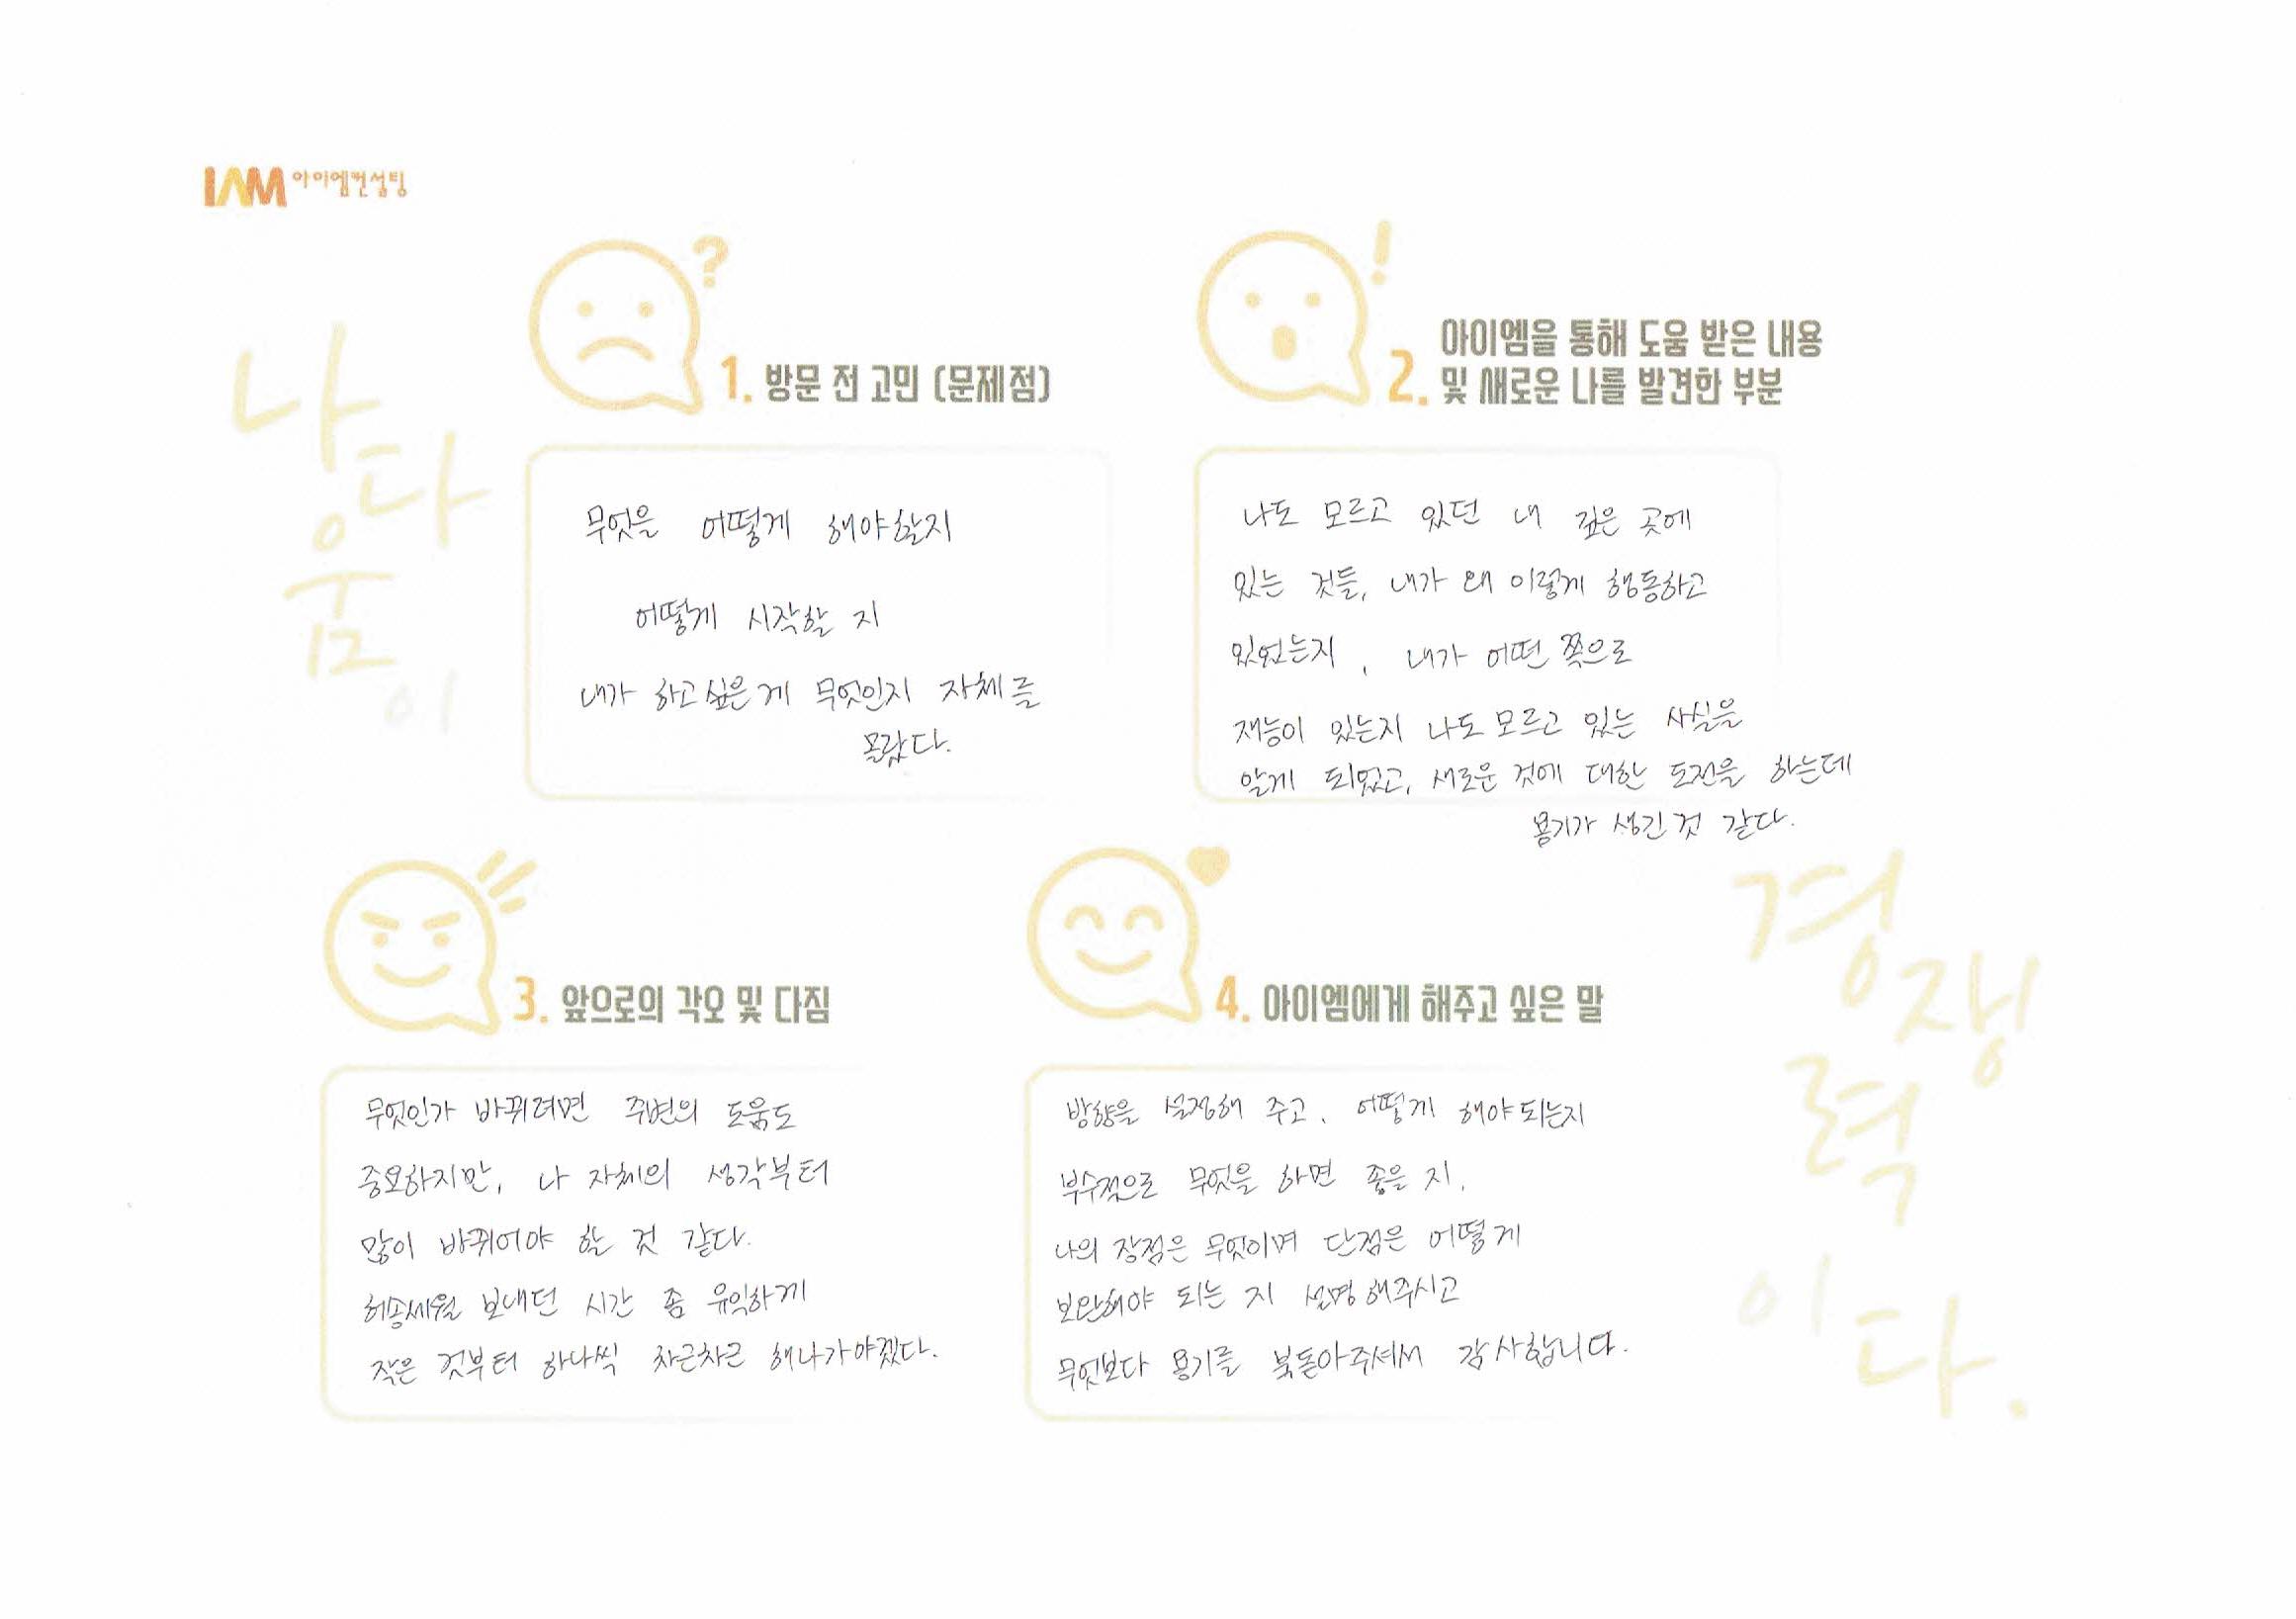 IAM 아이엠컨설팅
나다움이
1. 방문 전 고민 (문제점)
무엇을 어떻게 해야할지
어떻게 시작할 지
내가 하고싶은게 무엇인지 자체를
몰랐다.
2. 아이엠을 통해 도움 받은 내용
및 새로운 나를 발견한 부분
나도 모르고 있던 내 깊은 곳에
있는 것들, 내가 왜 이렇게 행동하고
있었는지, 내가 어떤 쪽으로
재능이 있는지 나도 모르고 있는 사실을
알게 되었고, 새로운 것에 대한 도전을 하는데
용기가 생긴 것 같다.
3. 앞으로의 각오 및 다짐
무엇인가 바뀌려면 주변의 도움도
중요하지만, 나 자체의 생각부터
많이 바뀌어야 할 것 같다.
허송세월 보내던 시간 좀 유익하게
작은 것부터 하나씩 차근차근 해나가야겠다.
4. 아이엠에게 해주고 싶은 말
방향을 설정해 주고, 어떻게 해야되는지
부수적으로 무엇을 하면 좋을 지,
나의 장점은 무엇이며 단점은 어떻게
보완해야 되는 지 설명해주시고
무엇보다 용기를 북돋아주셔서 감사합니다.
경쟁력이다.